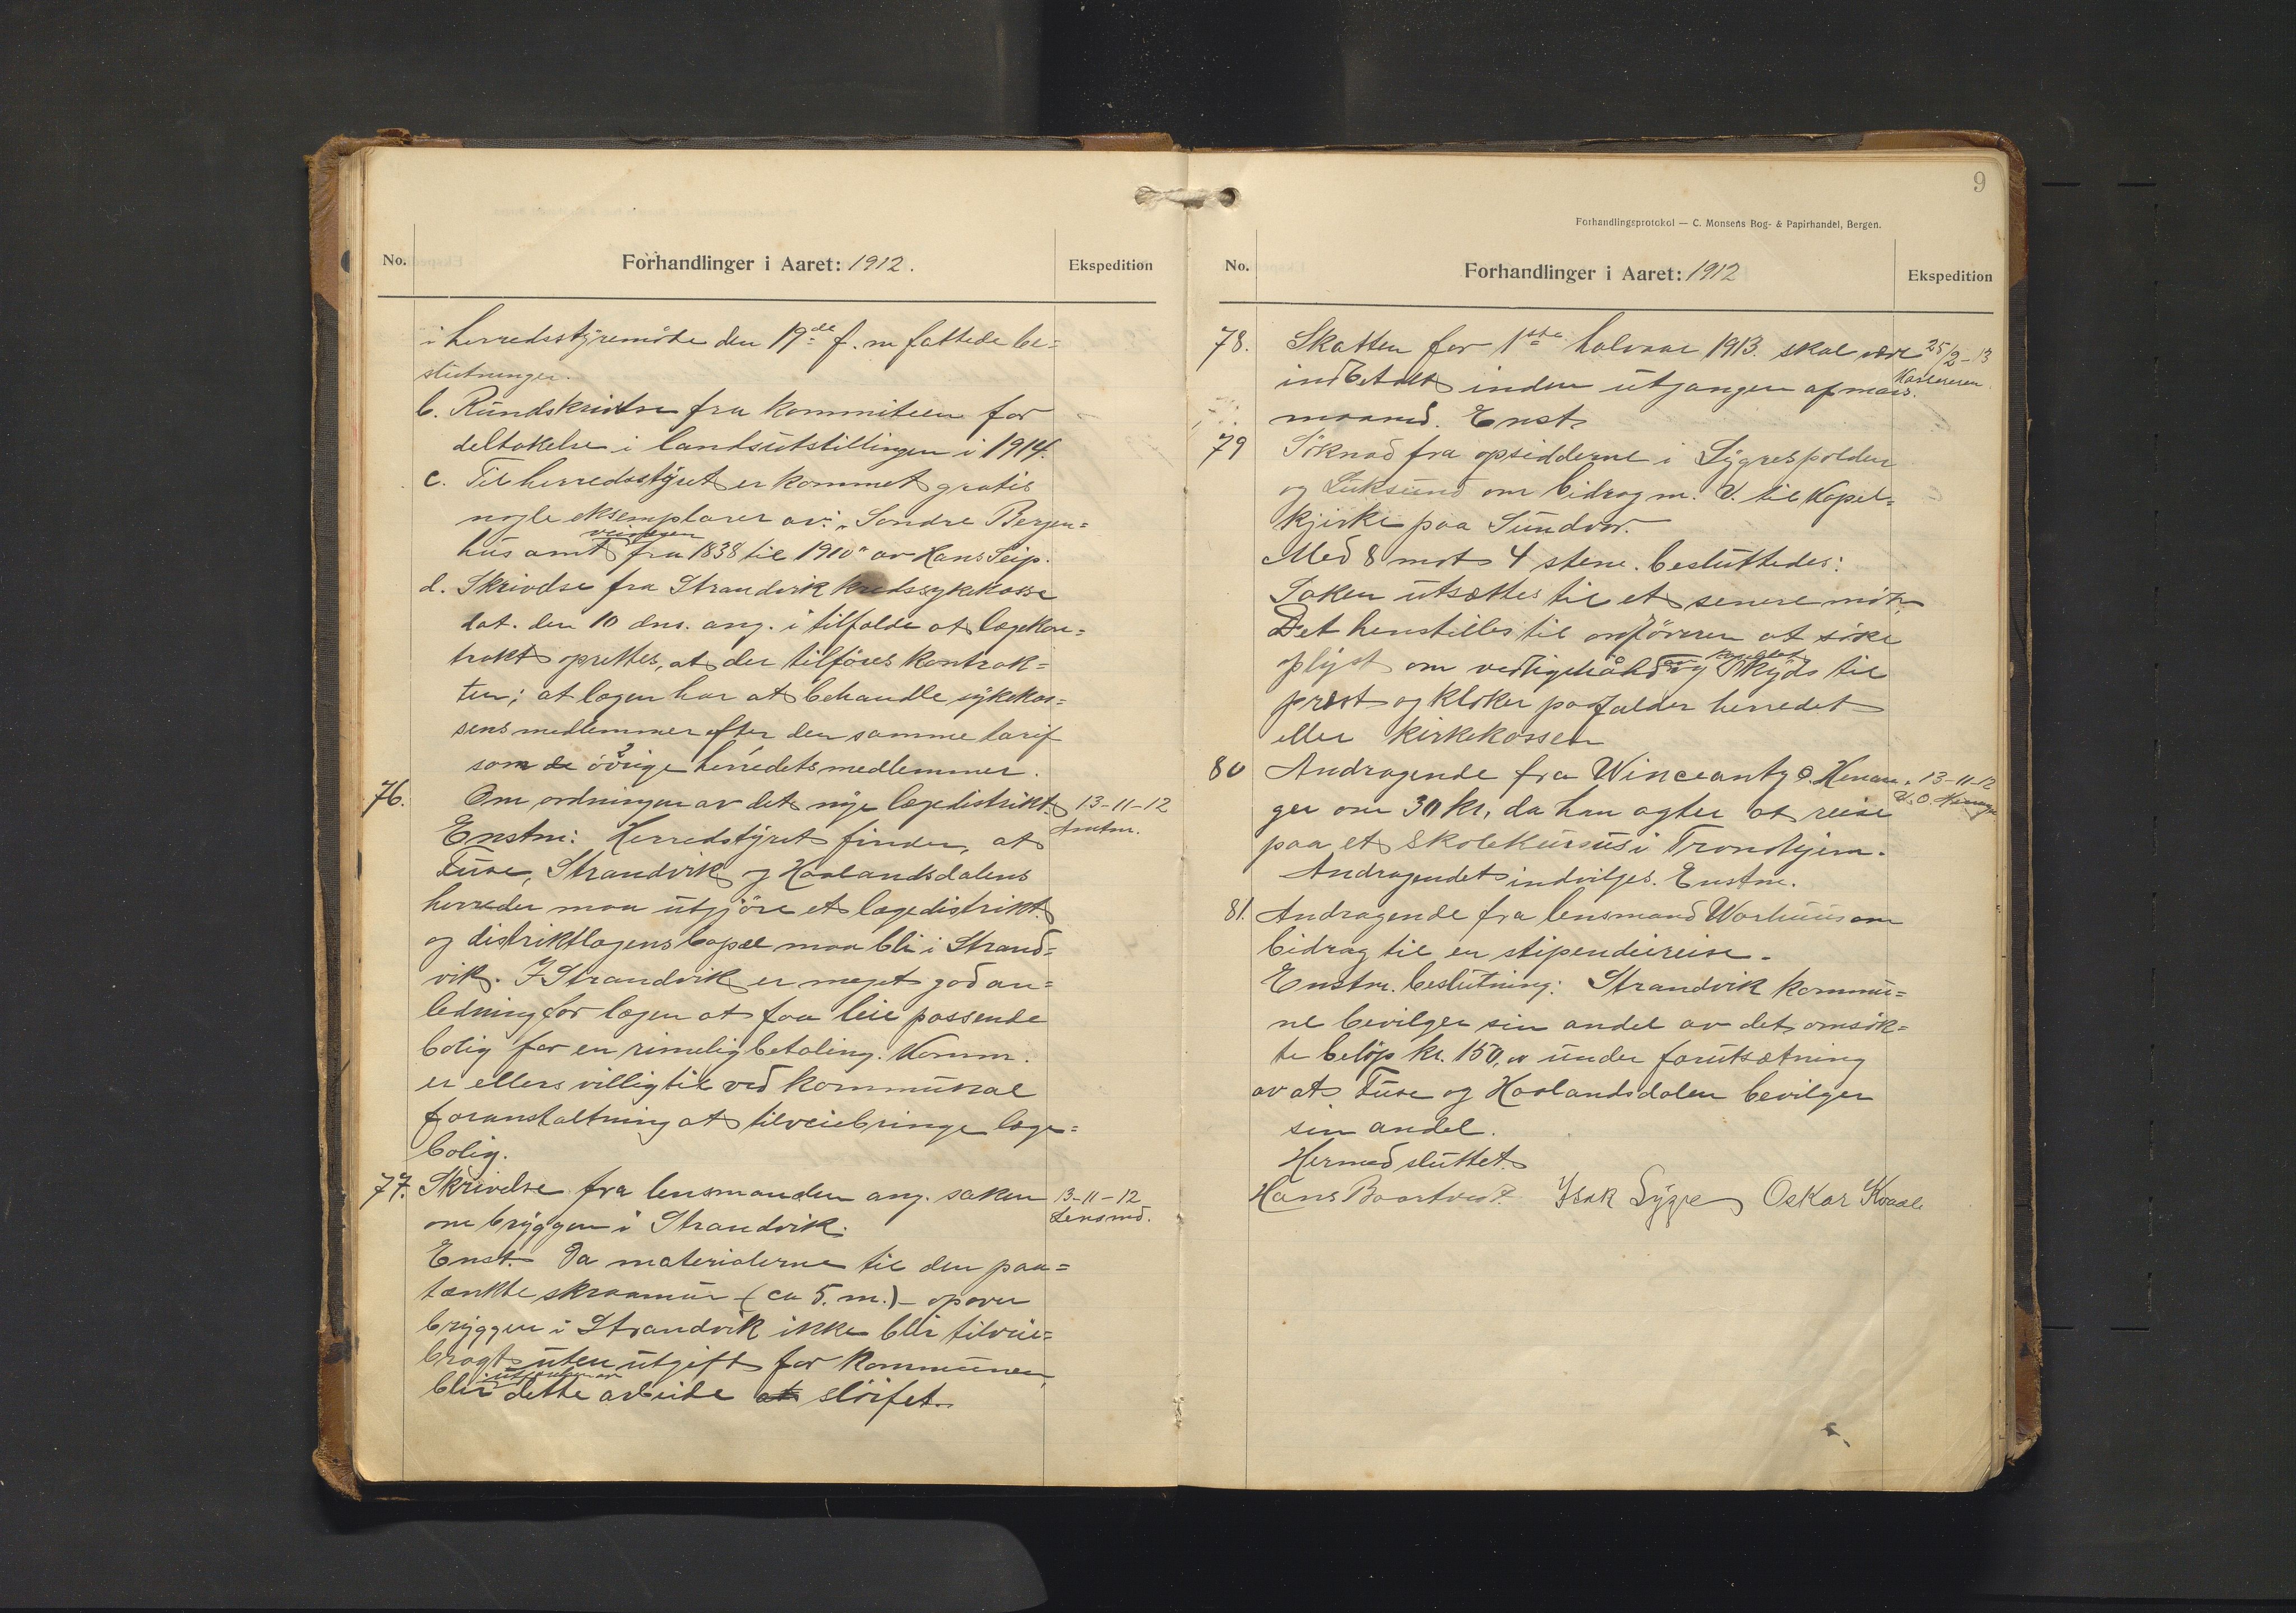 No.
Forhandlinger i Aaret: 1912.
Ekspedition
i herredsstyremöte den 19de f. m fattede be=
slutninger.
b. Rundskrivelse fra kommiteen for
deltakelse i landsutstillingen i 1914.
c. Til herredsstyret er kommet gratis
nogle eksemplarer av: "Söndre Bergen=
veivæsen
hus amt fra 1838 til 1910" av Hans Seip.
d. Skrivelse fra Strandvik kredssykekasse
dat. den 10 dns. ang. i tilfælde at lægekon=
trakt oprettes, at der tilföres kontrak=
ten; at lægen har at behandle sykekas=
sens medlemmer efter den samme tarif
som de övrige herredets medlemmer.
76. Om ordningen av det nye lægedistrikt. 13-11-12
Amtm.
Enstm: Herredstyret finder, at
Fuse, Strandvik og Haalandsdalens
herreder maa utgjöre et lægedistrikt
og distriktlægens bopæl maa bli i Strand=
vik. I Strandvik er meget god an=
ledning for lægen at faa leie passende
bolig for en rimelig betaling. Komm.
er ellers villig til ved kommunal
foranstaltning at tilveiebringe læge=
bolig.
77. Skrivelse fra lensmanden ang. saken 13-11-12
Lensmd.
om bryggen i Strandvik.
Enst. Da materialerne til den paa=
tænkte skraamur - (ca 5. m.) - opover
bryggen i Strandvik ikke blir tilveie=
bragt uten utgift for kommunen,
blir dette arbeide at slöifet.
9
Forhandlingsprotokol — C. Monsens Bog- & Papirhandel, Bergen.
No.
Forhandlinger i Aaret: 1912
Ekspedition
78. Skatten for 1ste halvaar 1913. skal være 25/2-13
Kasereren.
indbetalt inden utgangen af mars.
maaned. Enst.
79 Söknad fra opsidderne i Lygrespolden
og Luksund om bidrag m. v. til kapel=
kjirke paa Sundvor.
Med 8 mot 4 stem. besluttedes:
Saken utsættes til et senere möte
Det henstilles til ordföreren at söke
oplyst om vedligehold og skyds til
prest og kloker paafalder herredet
eller kirkekassen
80 Andragende fra Winceanty O. Henan= 13-11-12
V. O. Henanger
ger om 30 kr, da han agter at reise
paa et skolekursus i Trondhjem.
Andragendet indvilges. Enstm.
81. Andragende fra lensmand Warhuus om
bidrag til en stipendiereise.
Enstm. beslutning: Strandvik kommu=
ne bevilger sin andel av det omsök=
te belöp kr. 150,00 under forutsætning
av at Fuse og Haalandsdalen bevilger
sin andel.
Hermed sluttet.
Hans Baartvedt. Isak Lygre Oskar Kvaale